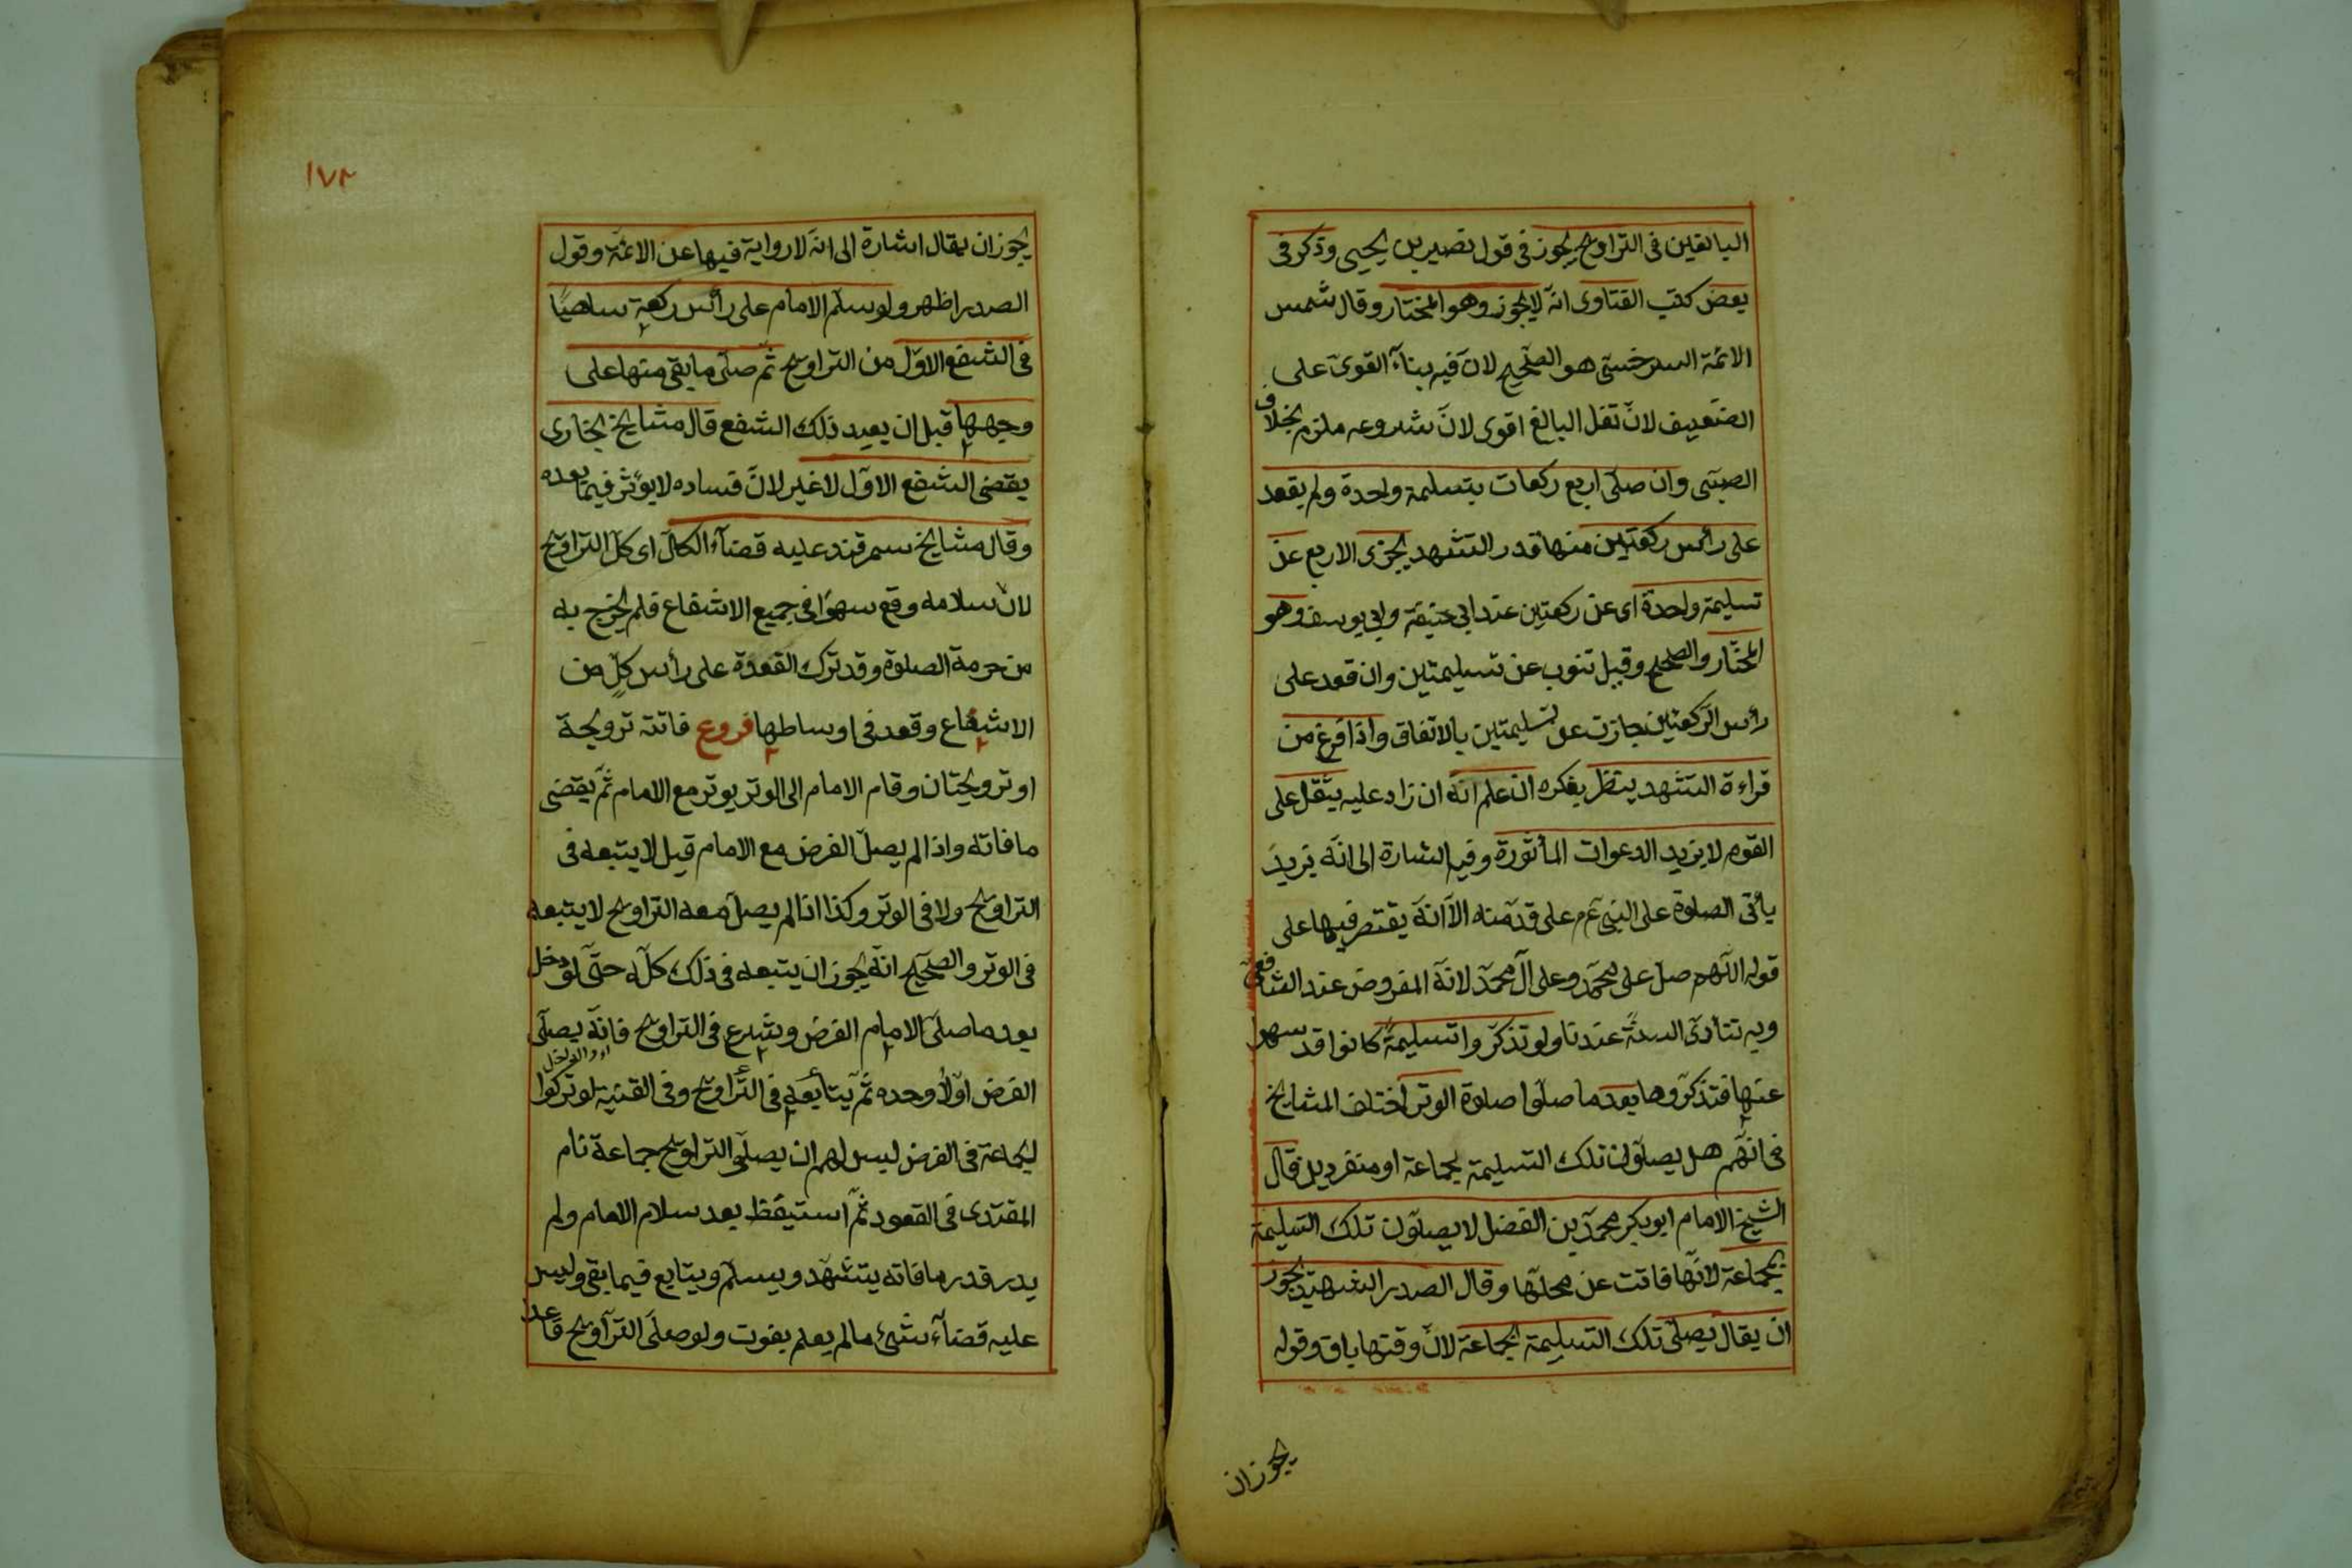 البالغين فى التراويح يجوز فى قول نصير بن يحيى وذكر فى
بعض كتب الفتاوى انه لا يجوز وهو المختار وقال شمس
الائمة السرخسى هو الصحيح لان فيه بناء القوى على
الضعيف لان نفل البالغ اقوى لان شروعه ملزم بخلاف
الصبى وان صلى اربع ركعات بتسليمة واحدة ولم يقعد
على رأس ركعتين منها قدر التشهد يجزى الاربع عن
تسليمة واحدة اى عن ركعتين عند ابى حنيفة وابى يوسف وهو
المختار والصحيح وقيل تنوب عن تسليمتين وان قعد على
رأس الركعتين جازت عن تسليمتين بالاتفاق واذا فرغ من
قراءة التشهد ينظر بفكره ان علم انه ان زاد عليه يثقل على
القوم لا يزيد الدعوات المأثورة وفيه اشارة الى انه يزيد
يأتى الصلوة على النبى عم على قدمنه الا انه يقتصر فيها على
قوله اللهم صل على محمد وعلى آل محمد لانه المفروض عند الشافعى
وبه تتأدى السنة عندنا ولو تذكروا تسليمة كانوا قد سهوا
عنها فتذكروها بعد ما صلوا صلوة الوتر اختلف المشايخ
فى انهم هل يصلون تلك التسليمة بجماعة او منفردين قال
الشيخ الامام ابو بكر محمد بن الفضل لا يصلون تلك التسليمة
بجماعة لانها فاتت عن محلها وقال الصدر الشهيد يجوز
ان يقال يصلى تلك التسليمة بجماعة لان وقتها باق وقوله
يجوز ان
١٧٢
يجوز ان يقال اشارة الى انه لا رواية فيها عن الائمة وقول
الصدر اظهر ولو سلم الامام على رأس ركعة ساهيا
فى الشفع الاول من التراويح ثم صلى ما بقى منها على
وجهها قبل ان يعيد ذلك الشفع قال مشايخ بخارى
يقضى الشفع الاول لا غير لان فساده لا يؤثر فيما بعده
وقال مشايخ سمرقند عليه قضاء الكل اى كل التراويح
لان سلامه وقع سهوا فى جميع الاشفاع فلم يخرج به
من حرمة الصلوة وقد ترك القعدة على رأس كل من
الاشفاع وقعد فى اوساطها فروع فاتته ترويحة
او ترويحتان وقام الامام الى الوتر يوتر مع الامام ثم يقضى
ما فاته واذا لم يصل الفرض مع الامام قيل لا يتبعه فى
التراويح ولا فى الوتر وكذا اذا لم يصل معه التراويح لا يتبعه
فى الوتر والصحيح انه يجوز ان يتبعه فى ذلك كله حتى لو دخل
بعد ما صلى الامام الفرض وشرع فى التراويح فانه يصلى
الفرض اولا وحده ثم يتابعه فى التراويح وفى القنية لو تركوا
الجماعة فى الفرض ليس لهم ان يصلى التراويح جماعة نام
المقتدى فى القعود ثم استيقظ بعد سلام الامام ولم
يدر قدر ما فاته يتشهد ويسلم ويتابع فيما بقى وليس
عليه قضاء شئ مالم يعلم يفوت ولو صلى التراويح قاعدا